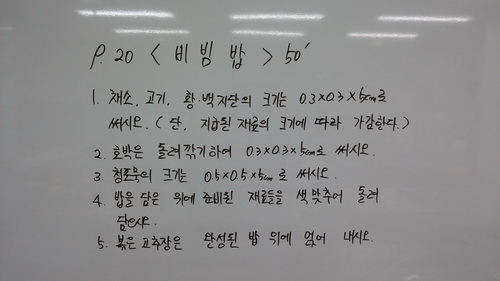 P.20 < 비빔밥 > 50'
1. 채소, 고기, 황·백지단의 크기는 0.3×0.3×5cm로
써시오. ( 단, 지급된 재료의 크기에 따라 가감한다.)
2. 호박은 돌려깎기하여 0.3×0.3×5cm로 써시오.
3. 청포묵의 크기는 0.5×0.5×5cm로 써시오.
4. 밥을 담은 위에 준비된 재료들을 색 맞추어 돌려
담으시오.
5. 볶은 고추장은 완성된 밥 위에 얹어 내시오.